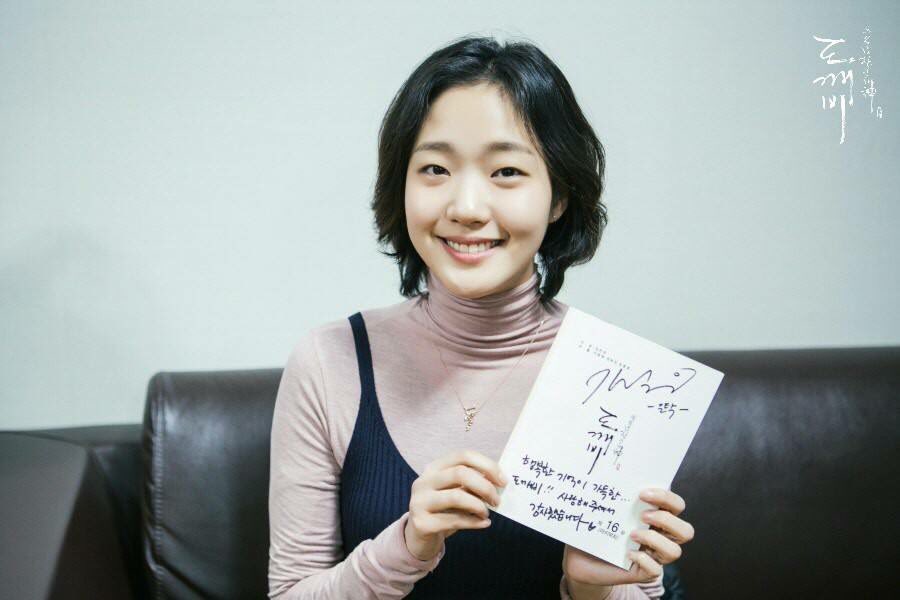 도깨비
쓸쓸하고 찬란하神
-은탁-
쓸쓸하고 찬란하神
도깨비
행복한 기억이 가득한...
도깨비!! 사랑해주셔서
감사했습니다
제 16 회